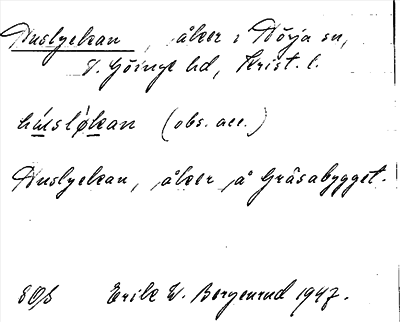 Huslyckan, åker i Röja sn,
V. Göinge hd, Krist. l.
húsløkan (obs. acc.)
Huslyckan, åker å Gråsabygget.
Erik W. Bergenrud 1947.